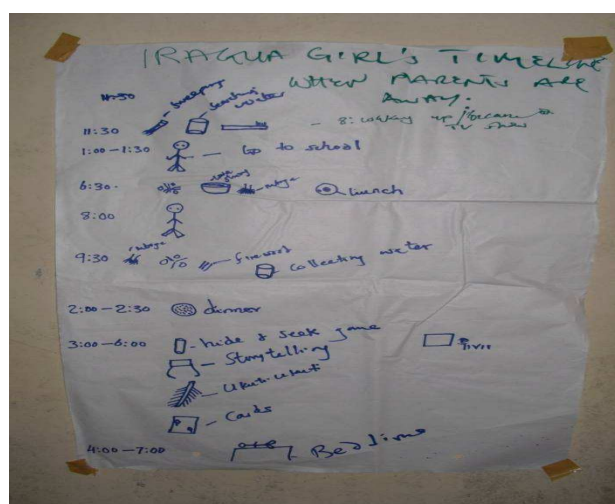 IRAGUA GIRL'S TIMELINE
WHEN PARENTS ARE
AWAY.
sweeping
water
11:30
8: waking up / because of
TV show
1:00-1:30 Go to school
6:30. lunch
8:00
9:30 firewood
collecting water
2:00-2:30 dinner
3:00-6:00 hide & seek game
Storytelling
Ukuti-ukuti
Cards
4:00-7:00 Bedtime